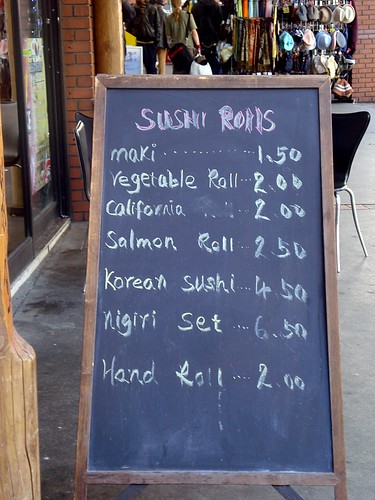 SUSHI ROllS
maki ............ 1.50
Vegetable Roll... 2.00
California ..... 2.00
Salmon Roll... 2.50
Korean sushi... 4.50
nigiri set .... 6.50
Hand Roll .... 2.00